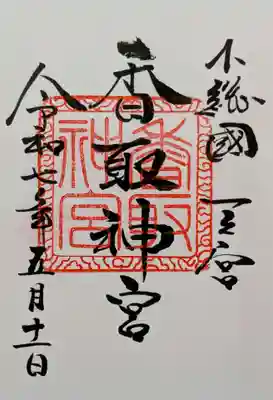 下総國一宮
香取神宮
令和七年五月十一日
香取神宮